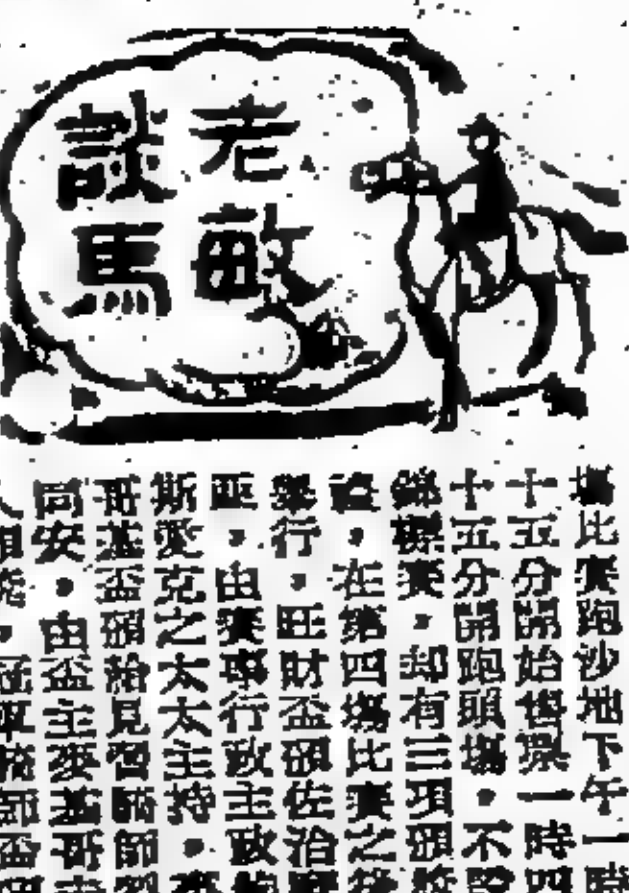 老敏
談馬
場比賽跑沙地下午一時
十五分開始售票一時四
十五分開跑頭場，不設
錦標賽，却有三項頒
在第四場比賽之後
舉行，旺財盃頒佐治
亞，由賽事行政主政
斯愛克之太太主持，麥
哥基盃頒給見習騎師
同安，由盃主麥基哥夫
冠軍騎師盃